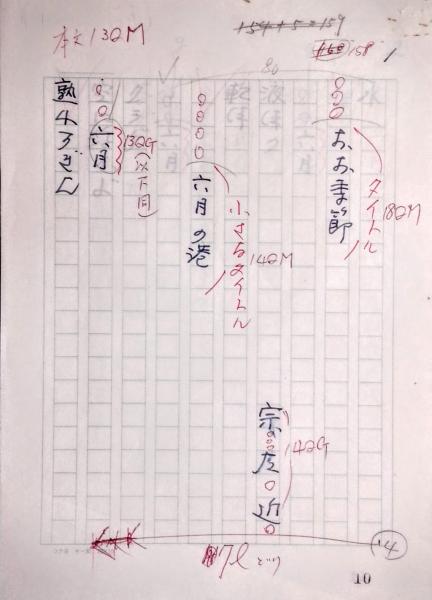 本文13QM
154+5=159
158
1
おお季節
タイトル
18QM
六月の港
小さなタイトル
14QM
宗左近
14QG
六月
13QG
(以下同)
熟れろぎん
7l どり
14
10